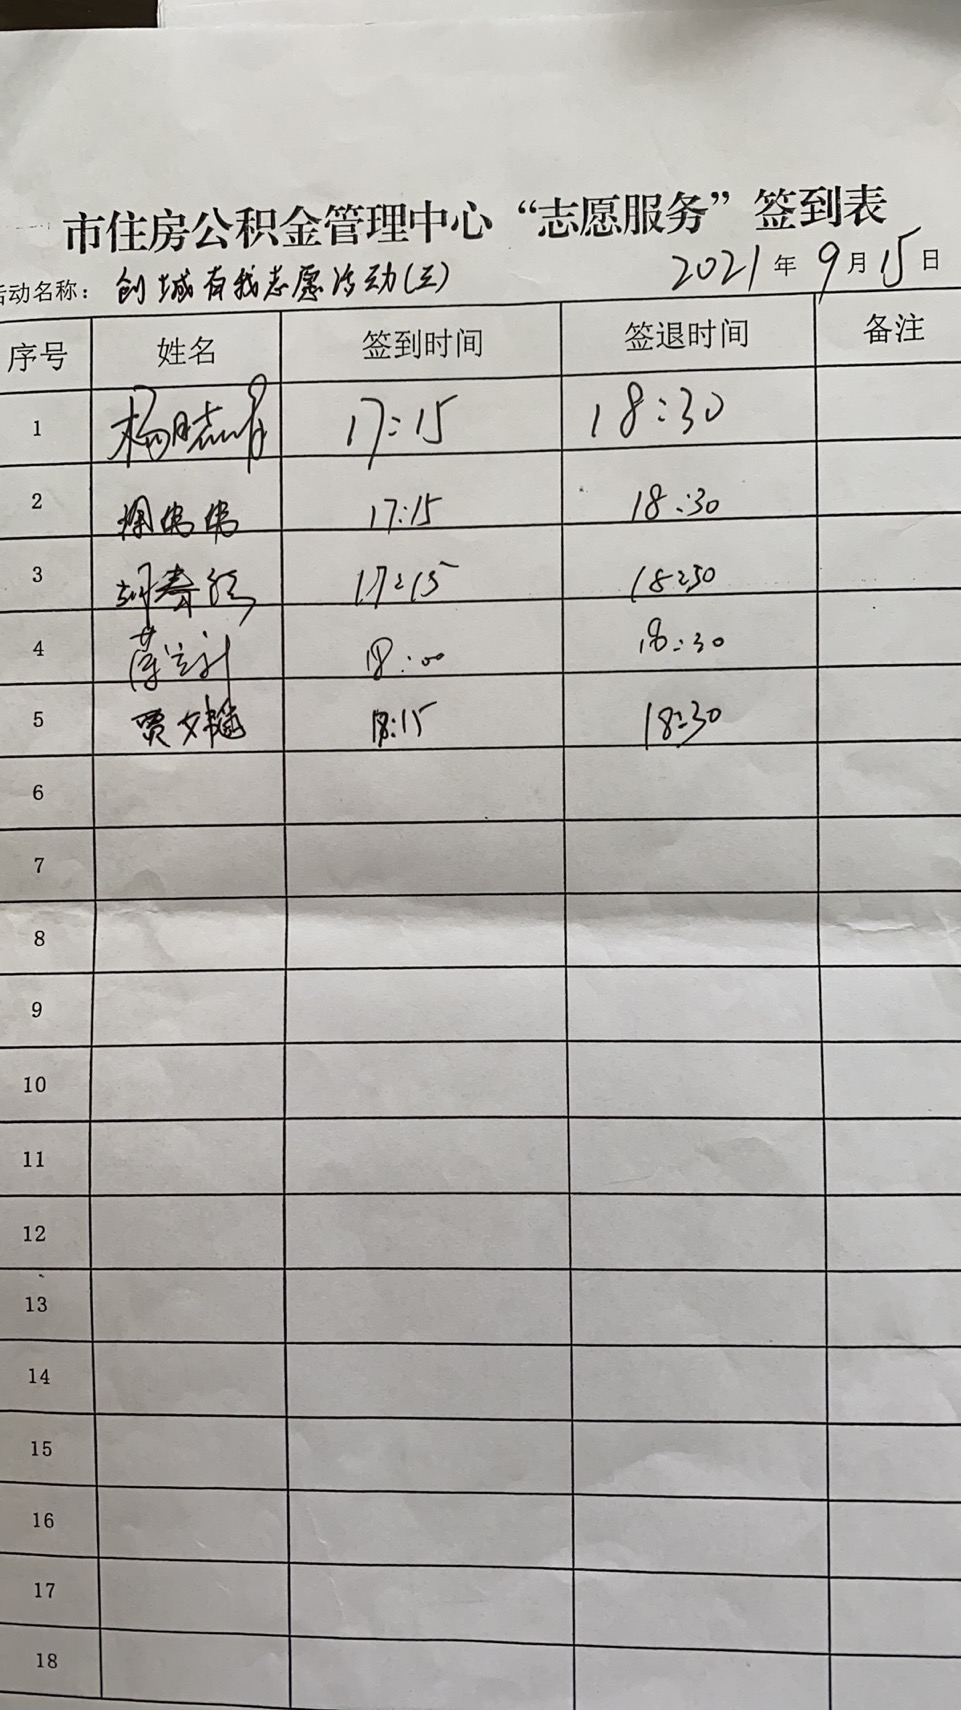 市住房公积金管理中心“志愿服务”签到表
活动名称：创城有我志愿活动(三) 2021年9月15日
序号 姓名 签到时间 签退时间 备注
1 17:15 18:30
2 17:15 18:30
3 17:15 18:30
4 18:00 18:30
5 贾文 18:15 18:30
6
7
8
9
10
11
12
13
14
15
16
17
18